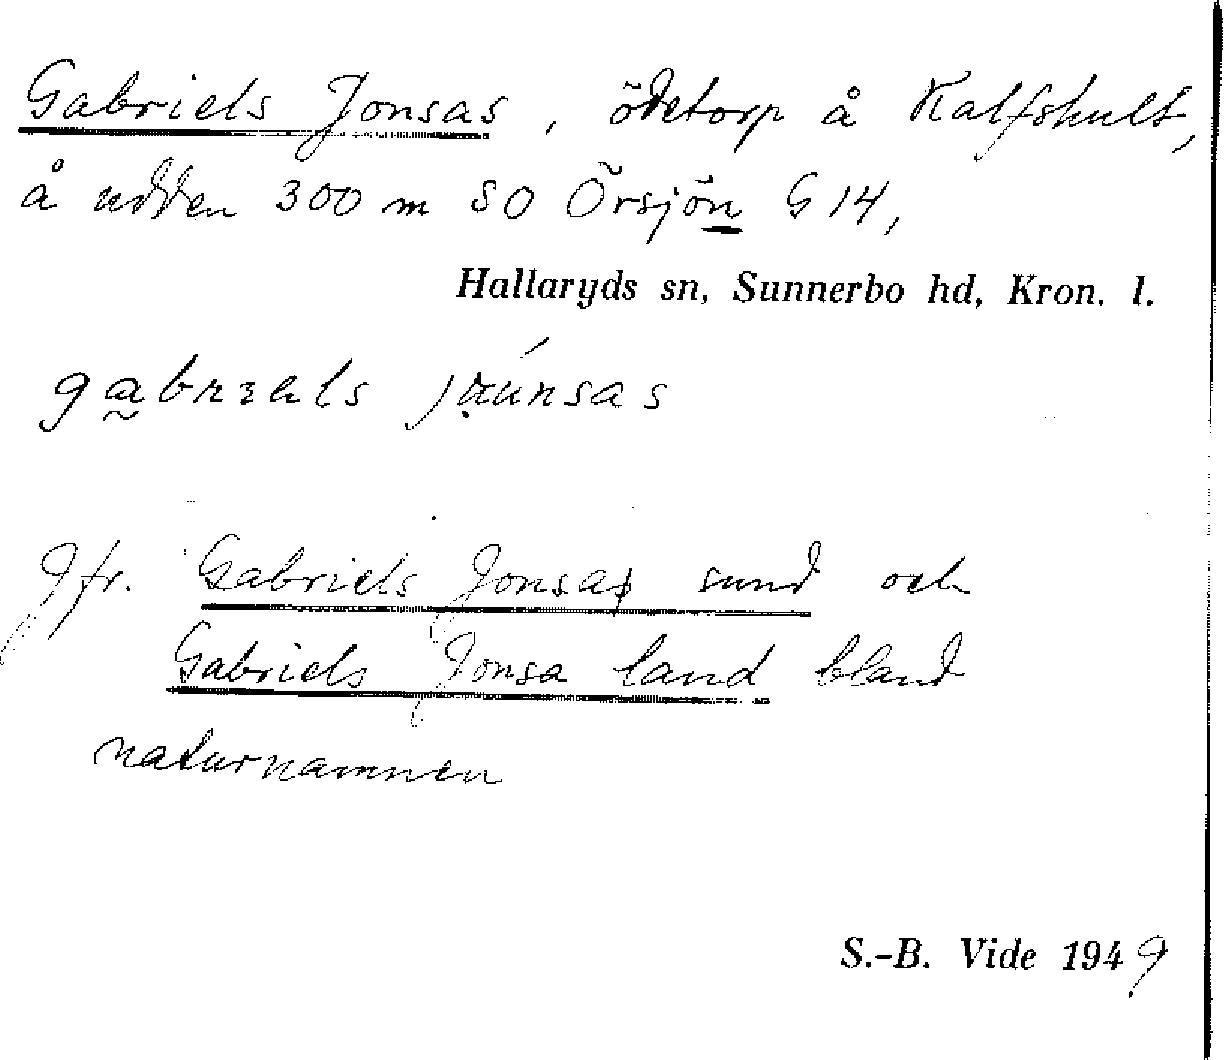 Gabriels Jonsas, ödetorp å Kalfshult,
å udden 300 m SO Örsjön G 14,
Hallaryds sn, Sunnerbo hd, Kron. l.
Jfr. Gabriels Jonsas sund och
Gabriels Jonsa land bland
naturnamnen
S.-B. Vide 1949